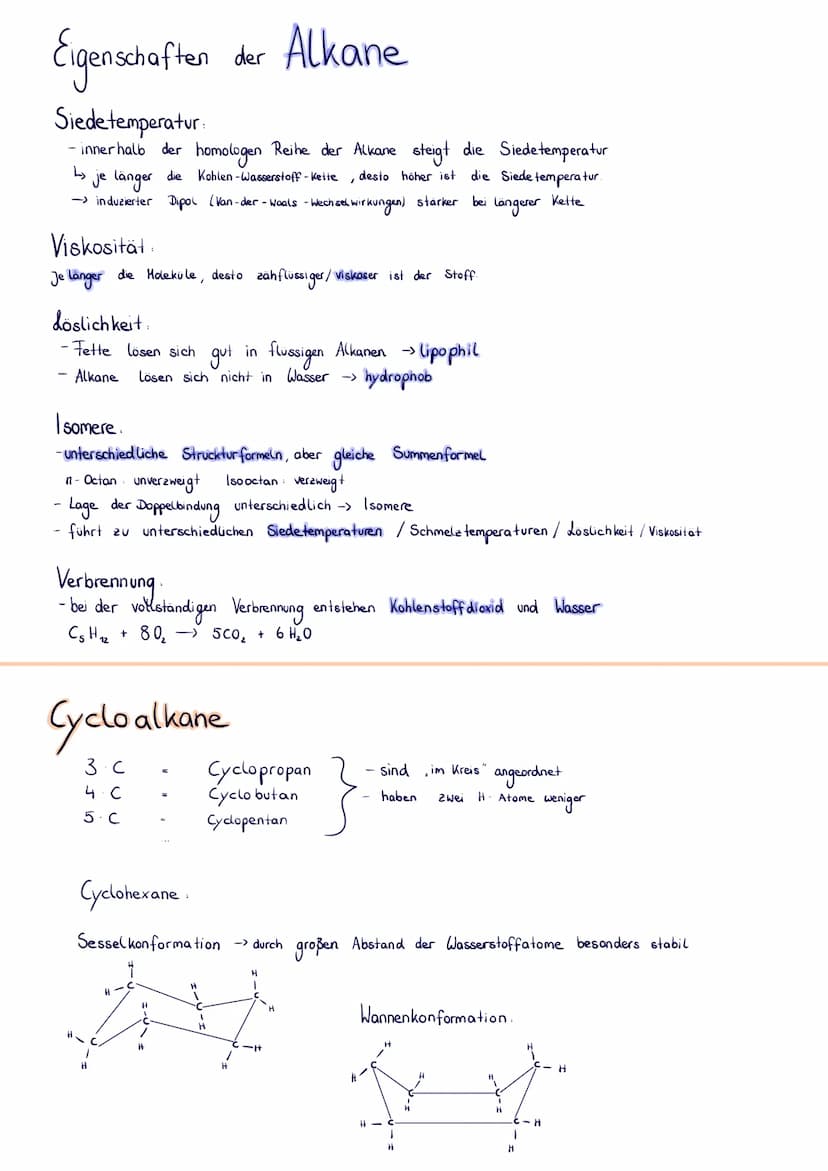 Eigenschaften der Alkane
Siedetemperatur:
- innerhalb der homologen Reihe der Alkane steigt die Siedetemperatur
↳ je länger die Kohlen-Wasserstoff-Kette, desto höher ist die Siedetemperatur
→ induzierter Dipol (Van-der-Waals-Wechselwirkungen) stärker bei längerer Kette
Viskosität:
Je länger die Moleküle, desto zähflüssiger/viskoser ist der Stoff
Löslichkeit:
- Fette lösen sich gut in flüssigen Alkanen → lipophil
- Alkane lösen sich nicht in Wasser → hydrophob
Isomere:
- unterschiedliche Struckturformeln, aber gleiche Summenformel
n-Octan: unverzweigt Isooctan: verzweigt
- Lage der Doppelbindung unterschiedlich → Isomere
- führt zu unterschiedlichen Siedetemperaturen / Schmelztemperaturen / Löslichkeit / Viskosität
Verbrennung:
- bei der vollständigen Verbrennung entstehen Kohlenstoffdioxid und Wasser
C₅H₁₂ + 8O₂ → 5CO₂ + 6H₂O
Cycloalkane
3·C = Cyclopropan - sind „im Kreis" angeordnet
4·C = Cyclobutan - haben zwei H-Atome weniger
5·C = Cyclopentan
...
Cyclohexane:
Sesselkonformation → durch großen Abstand der Wasserstoffatome besonders stabil
H H H
H C H C H
H C C H
H C H C H
H H H
Wannenkonformation:
H H
H C C H
H C H C
H H
H C C H
H H